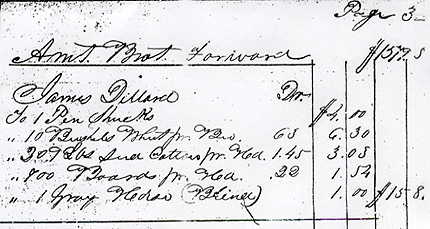 Page 3
Amt. Brot. Forward $1579.5
James Dillard Dr.
To 1 Pen Shucks $4.00
" 10 Bushels Wheat pr. Bu. 63 6.30
" 209 Lbs Seed Cotton pr. Hd. 1.45 3.03
" 700 Boards pr. Hd. 22 1.54
" 1 Gray Horse (Blind) 1.00 $15 8.